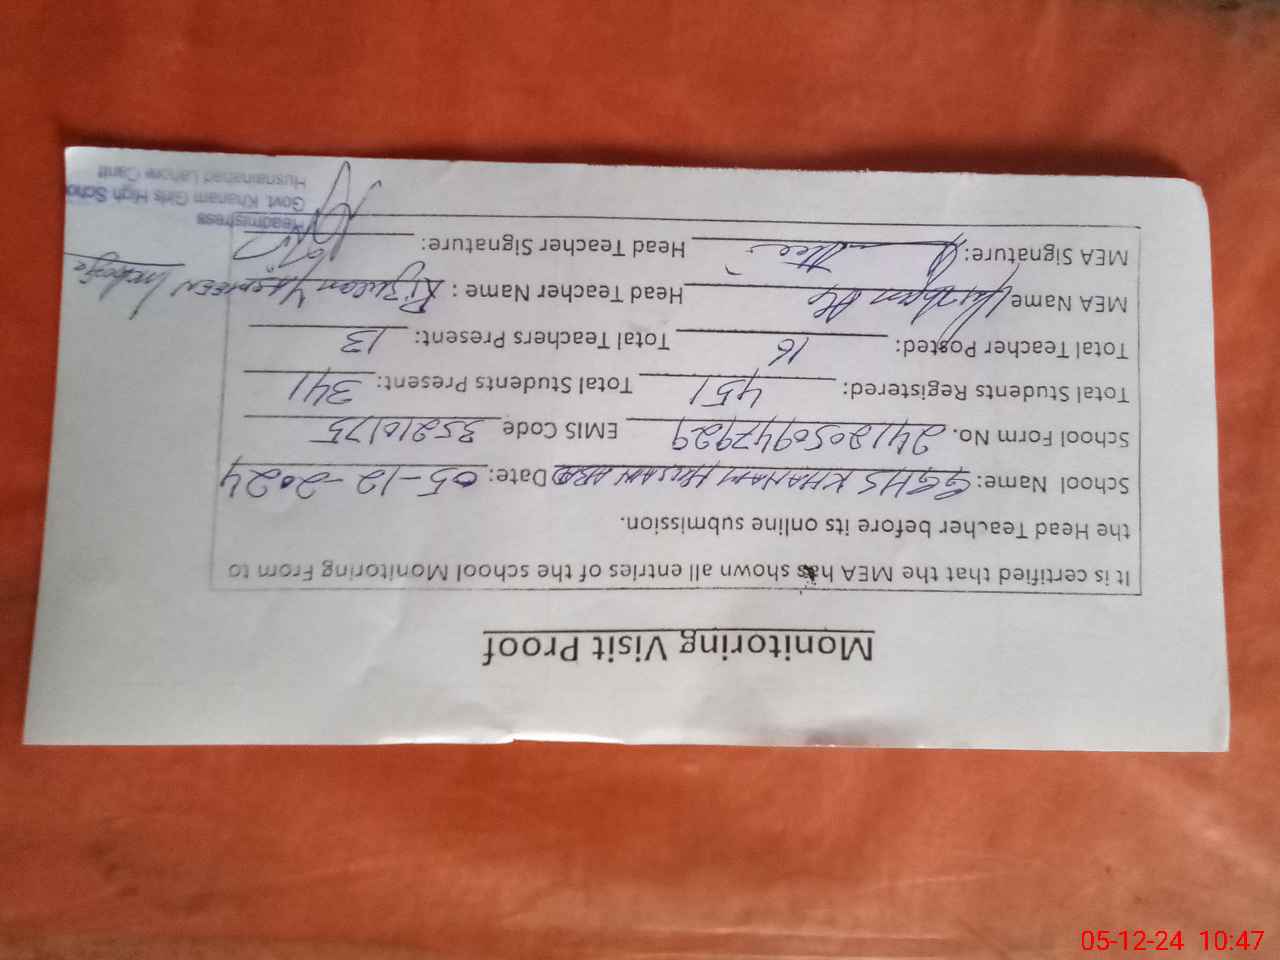 Monitoring Visit Proof
It is certified that the MEA has shown all entries of the school Monitoring From to
the Head Teacher before its online submission.
School Name: GGHS KHANAM HUSAIN ABAD Date: 05-12-2024
School Form No. 2412050947929 EMIS Code 35210175
Total Students Registered: 451 Total Students Present: 341
Total Teacher Posted: 16 Total Teachers Present: 13
MEA Name Head Teacher Name: YASMEEN Incharge
MEA Signature: Head Teacher Signature:
Headmistress
Govt. Khanam Girls High Scho
Husnainabad Lahore Cantt
05-12-24 10:47